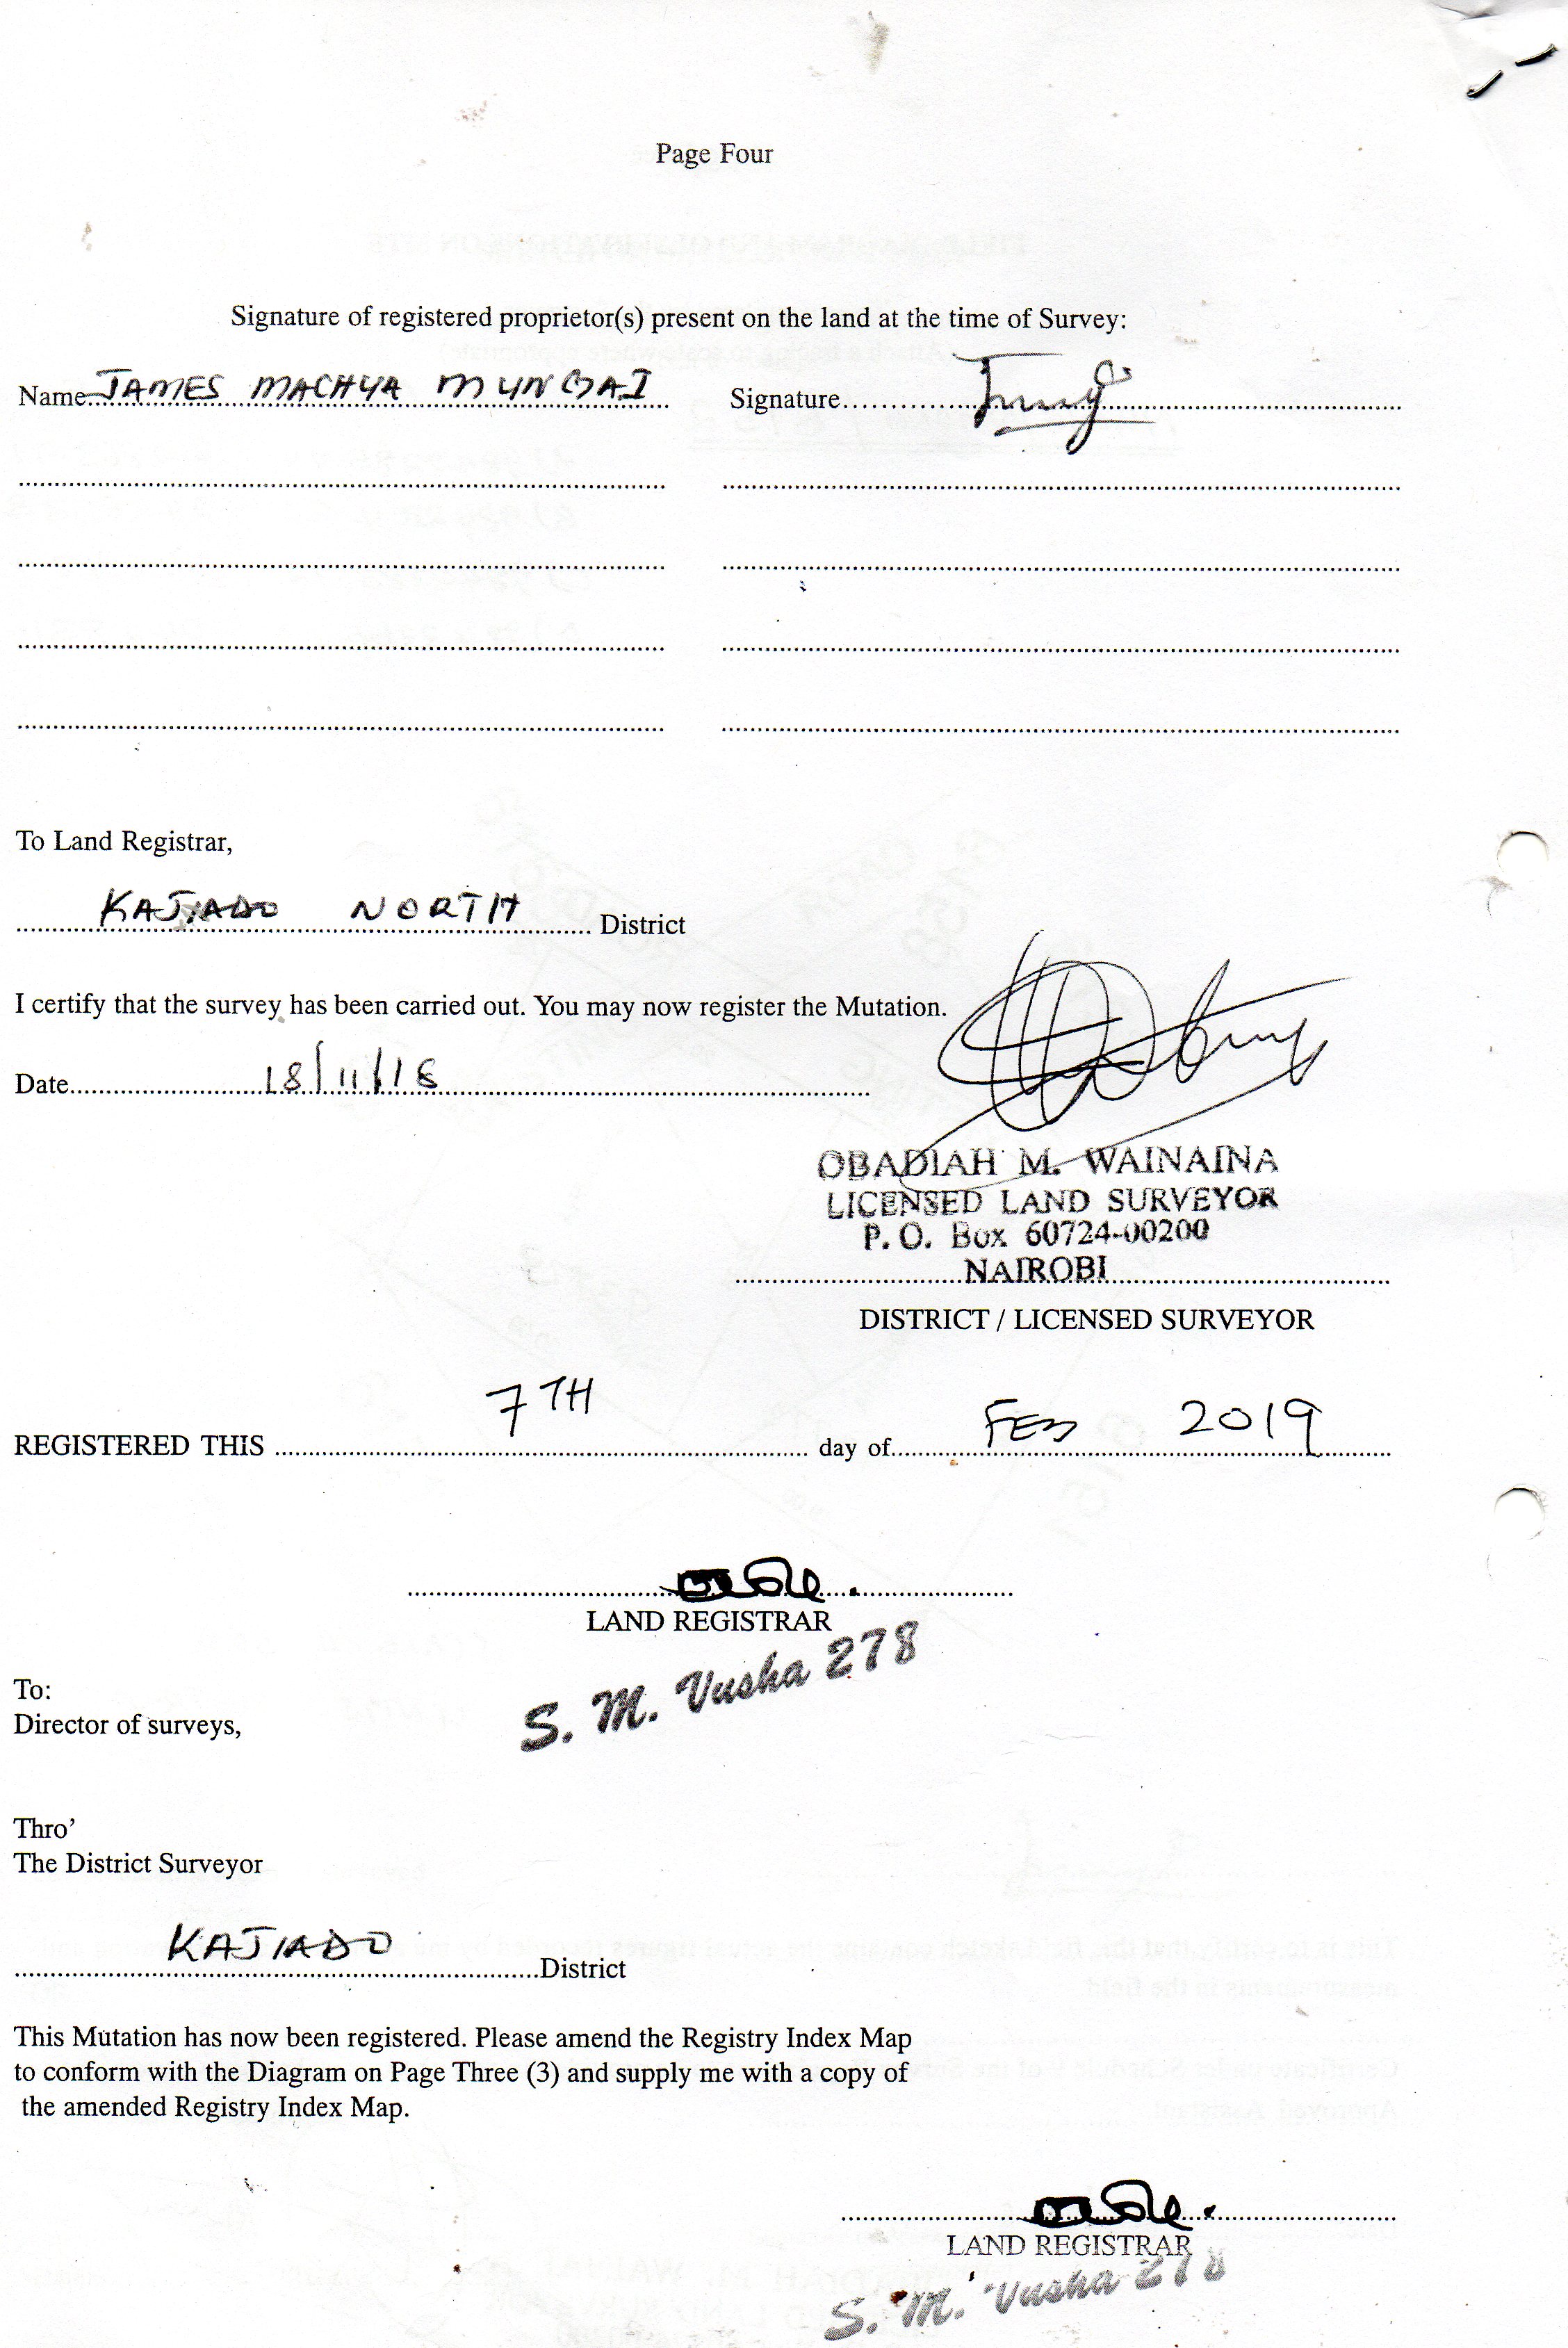 Page Four
Signature of registered proprietor(s) present on the land at the time of Survey:
Name JAMES MACHYA MUNGAI Signature
To Land Registrar,
KAJIADO NORTH District
I certify that the survey has been carried out. You may now register the Mutation.
Date 18/11/18
OBADIAH M. WAINAINA
LICENSED LAND SURVEYOR
P. O. Box 60724-00200
NAIROBI
DISTRICT / LICENSED SURVEYOR
REGISTERED THIS 7TH day of FEB 2019
LAND REGISTRAR
S. M. Vusha 278
To:
Director of surveys,
Thro'
The District Surveyor
KAJIADO District
This Mutation has now been registered. Please amend the Registry Index Map
to conform with the Diagram on Page Three (3) and supply me with a copy of
the amended Registry Index Map.
LAND REGISTRAR
S. M. Vusha 278